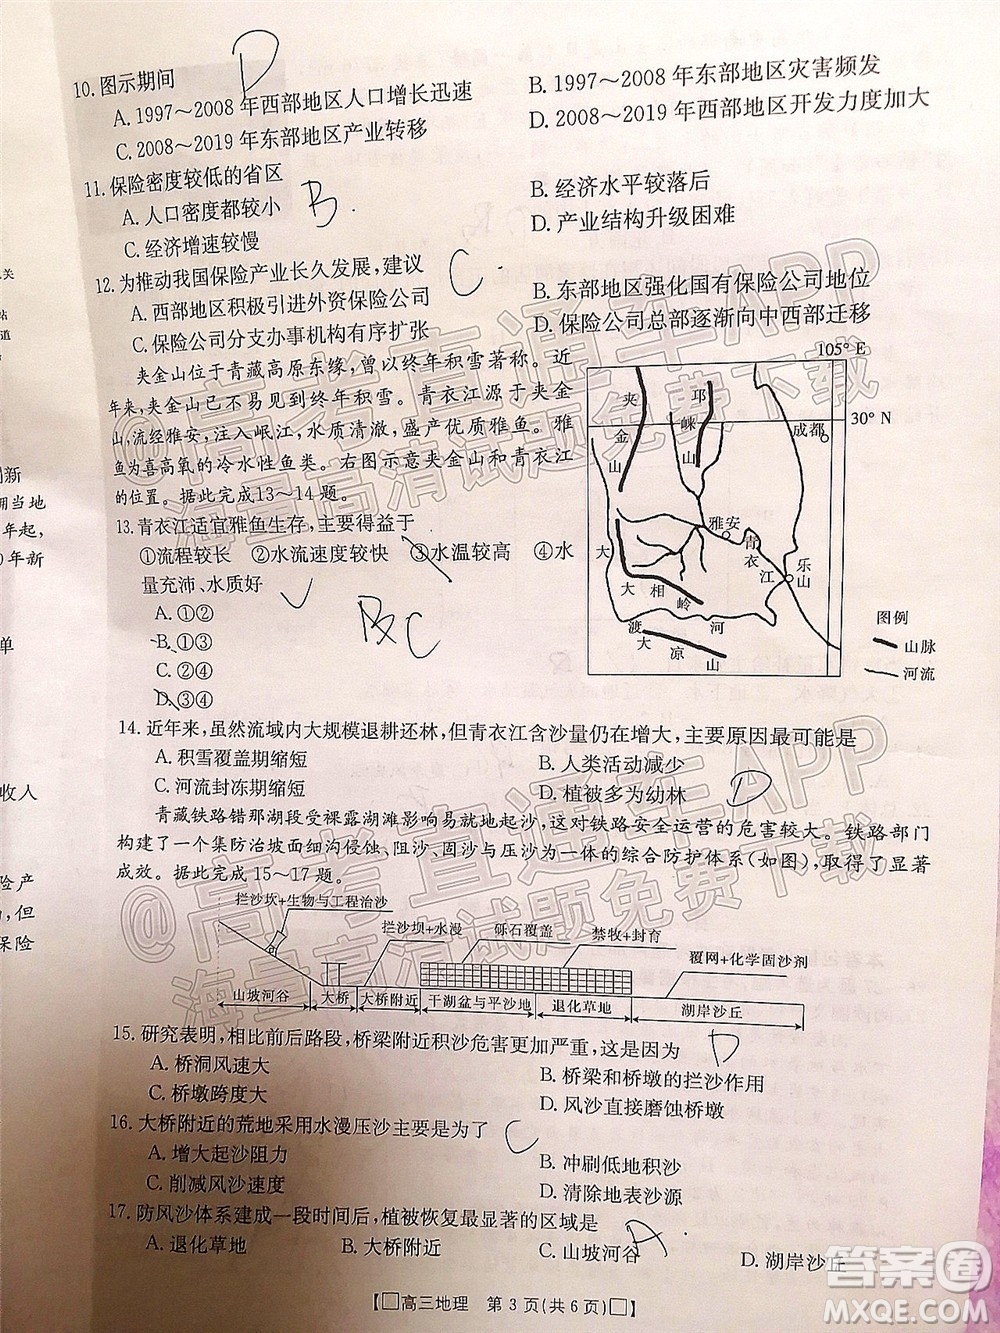 10. 图示期间
D
A. 1997～2008 年西部地区人口增长迅速
B. 1997～2008 年东部地区灾害频发
C. 2008～2019 年东部地区产业转移
D. 2008～2019 年西部地区开发力度加大
11. 保险密度较低的省区
B.
A. 人口密度都较小
B. 经济水平较落后
C. 经济增速较慢
D. 产业结构升级困难
12. 为推动我国保险产业长久发展,建议
C
A. 西部地区积极引进外资保险公司
B. 东部地区强化国有保险公司地位
C. 保险公司分支办事机构有序扩张
D. 保险公司总部逐渐向中西部迁移
夹金山位于青藏高原东缘,曾以终年积雪著称。近
年来,夹金山已少见到终年积雪。青衣江源于夹金
山,流经雅安,注入岷江,水质清澈,盛产优质雅鱼。雅
鱼为喜高氧的冷水性鱼类。右图示意夹金山和青衣江
的位置。据此完成13～14题。
13. 青衣江适宜雅鱼生存,主要得益于
①流程较长 ②水流速度较快 ③水温较高 ④水
量充沛、水质好
A. ①②
B. ①③
C. ②④
D. ③④
C
105° E
30° N
夹金山
邛崃山
成都
雅安
青衣江
乐山
大相岭
大渡河
大凉山
图例
山脉
河流
14. 近年来,虽然流域内大规模退耕还林,但青衣江含沙量仍在增大,主要原因最可能是
A. 积雪覆盖期缩短
B. 人类活动减少
C. 河流封冻期缩短
D. 植被多为幼林
D
青藏铁路错那湖段受裸露湖滩影响易就地起沙,这对铁路安全运营的危害较大。铁路部门
构建了一个集防治坡面沟侵蚀、阻沙、固沙与压沙为一体的综合防护体系(如图),取得了显著
成效。据此完成15～17题。
拦沙坎+生物与工程治沙
拦沙坝+水漫
砾石覆盖
禁牧+封育
覆网+化学固沙剂
山坡河谷
大桥
大桥附近
干湖盆与平沙地
退化草地
湖岸沙丘
15. 研究表明,相比前后路段,桥梁附近积沙危害更加严重,这是因为
D
A. 桥洞风速大
B. 桥梁和桥墩的拦沙作用
C. 桥墩跨度大
D. 风沙直接磨蚀桥墩
16. 大桥附近的荒地采用水漫压沙主要是为了
C
A. 增大起沙阻力
B. 冲刷低地积沙
C. 削减风沙速度
D. 清除地表沙源
17. 防风沙体系建成一段时间后,植被恢复最显著的区域是
A
A. 退化草地
B. 大桥附近
C. 山坡河谷
D. 湖岸沙丘
【□高三地理 第 3 页(共 6 页)□】
@高考直通车APP
海量高清试题免费下载
@高考直通车APP
海量高清试题免费下载
答案圈
MXQE.COM